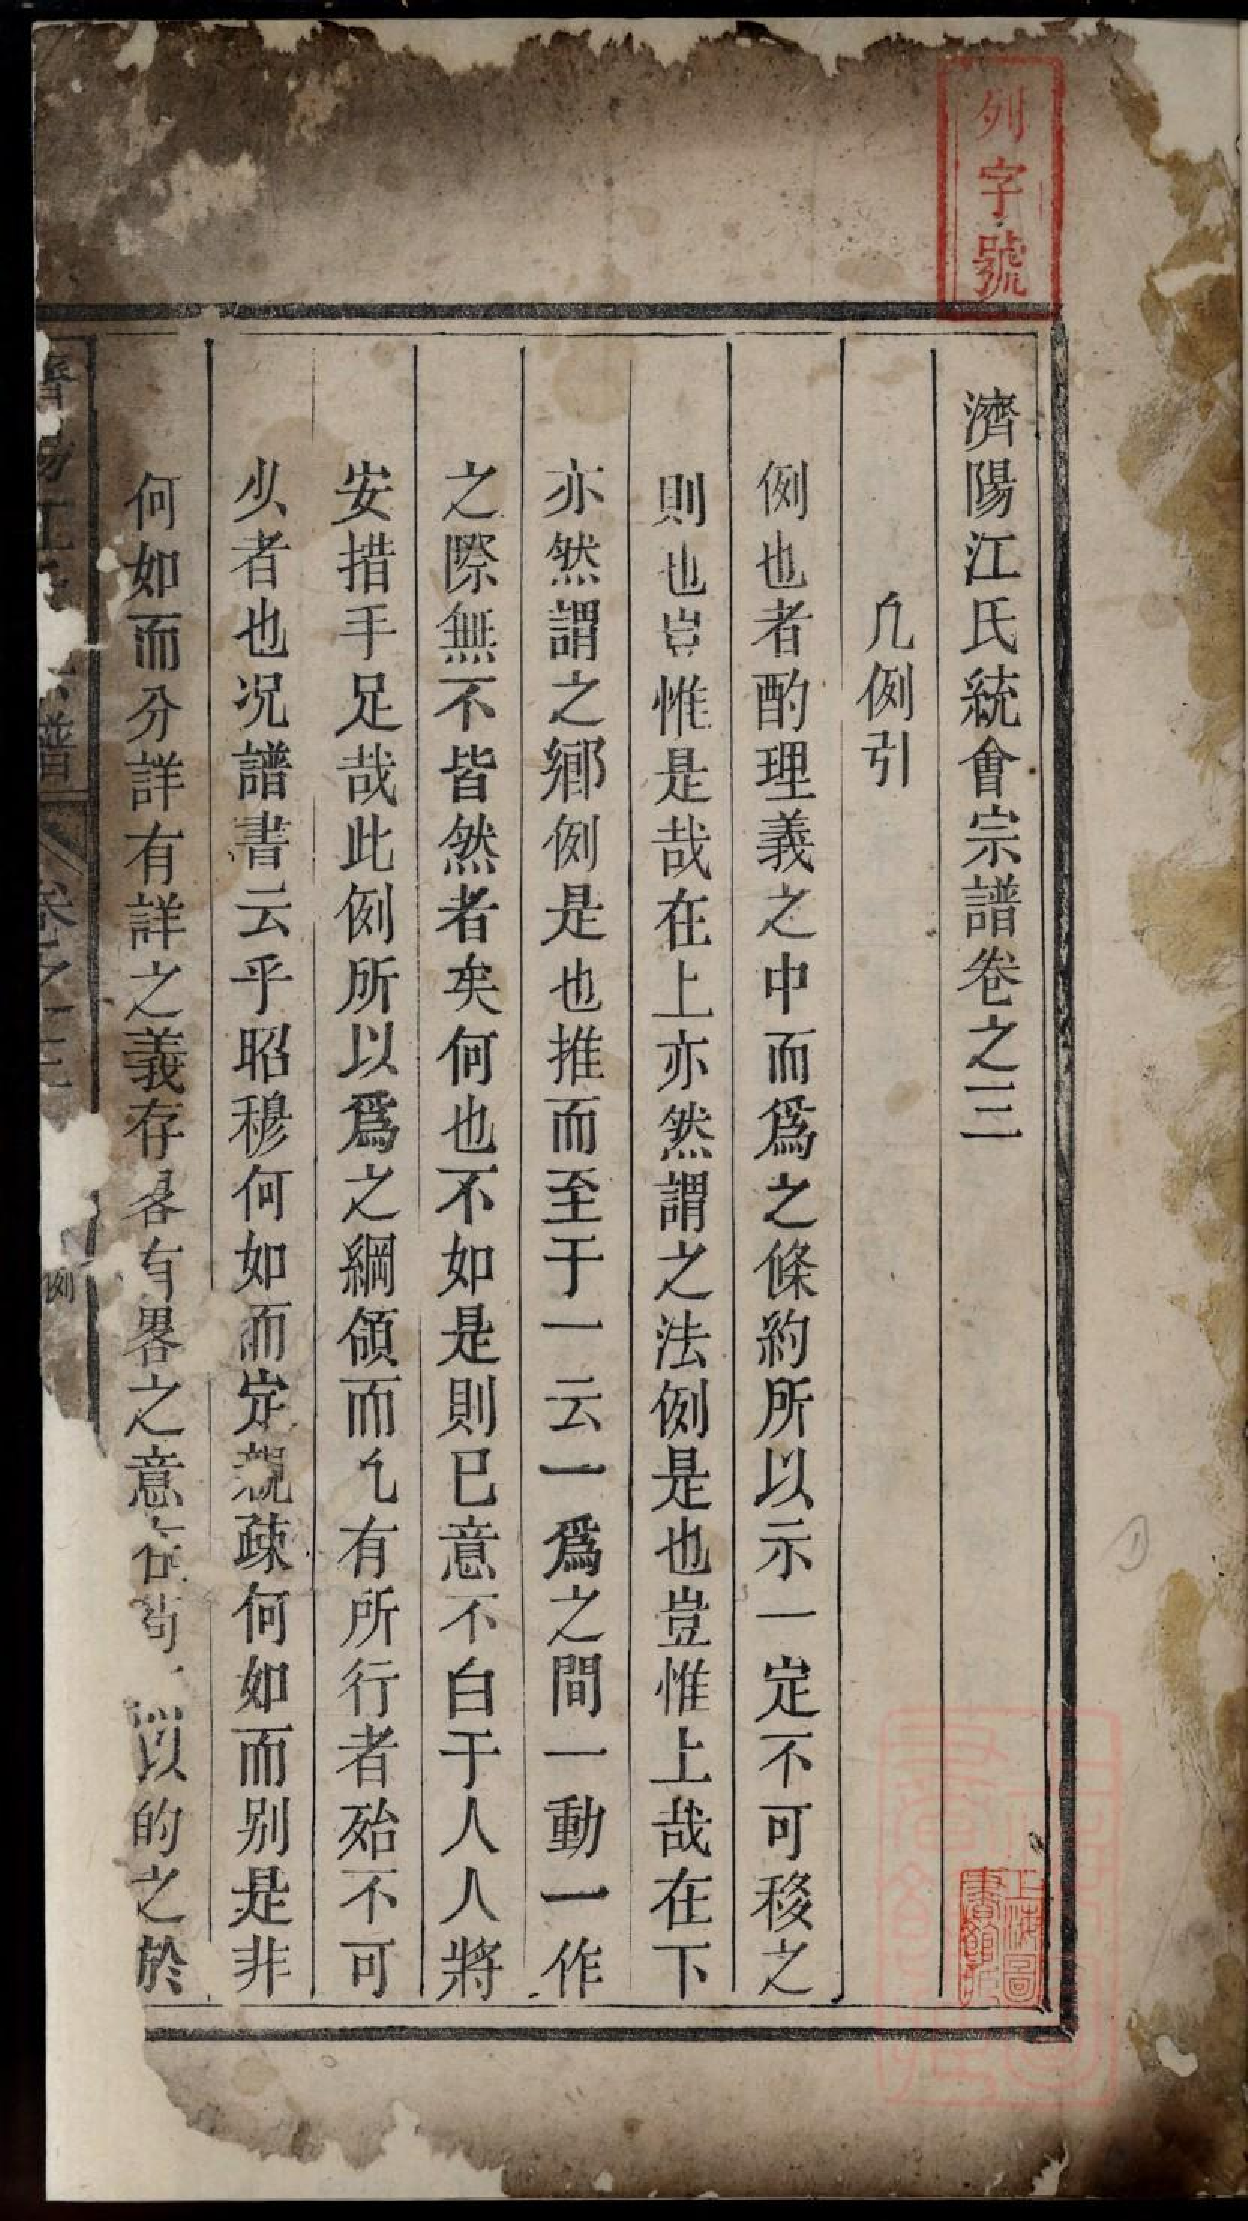 列字號
濟陽江氏統會宗譜卷之三
凡例引
例也者酌理義之中而爲之條約所以示一定不可移之
則也豈惟是哉在上亦然謂之法例是也豈惟上哉在下
亦然謂之鄉例是也推而至于一云一爲之間一動一作
之際無不皆然者矣何也不如是則已意不白于人人將
安措手足哉此例所以爲之綱領而凡有所行者殆不可
少者也况譜書云乎昭穆何如而定親疎何如而別是非
何如而分詳有詳之義存畧有畧之意在以的之於
濟陽江譜 卷之三 例
上海圖書館所